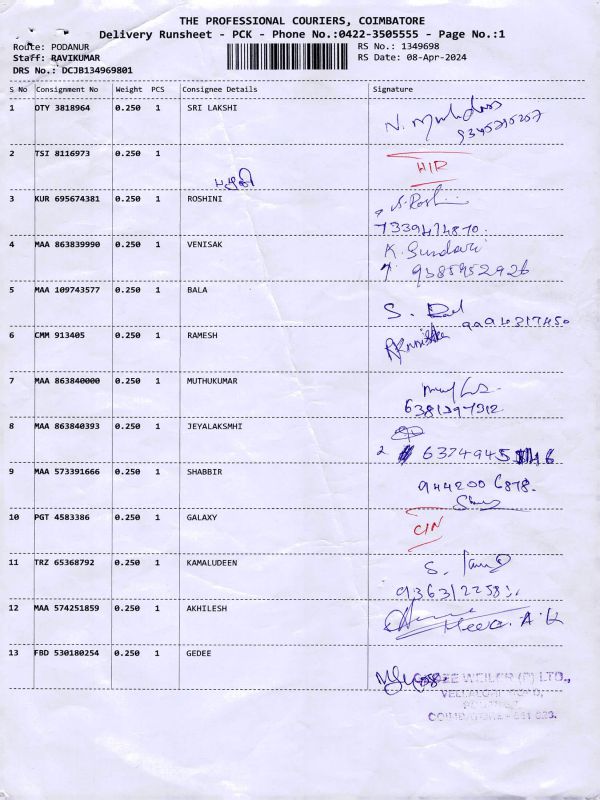 THE PROFESSIONAL COURIERS, COIMBATORE
Delivery Runsheet - PCK - Phone No.:0422-3505555 - Page No.:1
Route: PODANUR
RS No.: 1349698
Staff: RAVIKUMAR
RS Date: 08-Apr-2024
DRS No.: DCJB134969801
S No Consignment No Weight PCS Consignee Details Signature
1 DTY 3818964 0.250 1 SRI LAKSHI
2 TSI 8116973 0.250 1
3 KUR 695674381 0.250 1 ROSHINI
7339474870
4 MAA 863839990 0.250 1 VENISAK K. Sundari
9385952926
5 MAA 109743577 0.250 1 BALA
9994317450
6 CMM 913405 0.250 1 RAMESH
7 MAA 863840000 0.250 1 MUTHUKUMAR
8 MAA 863840393 0.250 1 JEYALAKSMHI
9 MAA 573391666 0.250 1 SHABBIR
9442006878.
10 PGT 4583386 0.250 1 GALAXY
11 TRZ 65368792 0.250 1 KAMALUDEEN
12 MAA 574251859 0.250 1 AKHILESH
Meera. A. K
13 FBD 530180254 0.250 1 GEDEE
WEILER (P) LTD.,